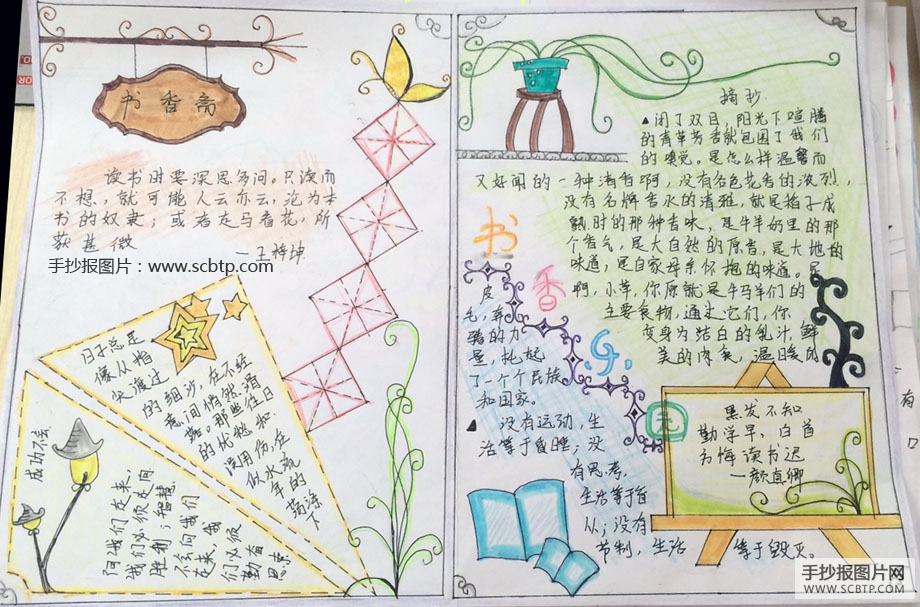 书香斋
读书时要深思多问。只读而
不想，就可能人云亦云，沦为本
书的奴隶；或者走马看花，所
获甚微
—王梓坤
手抄报图片：www.scbtp.com
日子总是
像从指
尖渡过
的细沙，在不经
意间悄然滑
落。那些往日
的忧愁和
误用伤，在
似水流
年的
荡涤
下
成功不会
向我们走来，
我们必须走向
胜利；智慧
不会向我们
走来，我
们必须
勤奋
思索
摘抄
▲闭了双目，阳光下喧腾
的青草芳香就包围了我们
的嗅觉。是怎么样温馨而
又好闻的一种清香啊，没有各色花香的浓烈，
没有名牌香水的清雅，就是稻子成
熟时的那种香味，是牛羊奶里的那
个香气，是大自然的原香，是大地的
味道，是自家母亲怀抱的味道。是
啊，小草，你原就是牛马羊们的
主要食物，通过它们，你
变身为洁白的乳汁，鲜
美的肉类，温暖的
皮
毛，奔
腾的力
量，托起
了一个个民族
和国家。
书
香
▲没有运动，生
活等于昏睡；没
有思考，
生活等于盲
从；没有
节制，生活
等于毁灭。
黑发不知
勤学早，白首
方悔读书迟
—颜真卿
手抄报图片网
WWW.SCBTP.COM